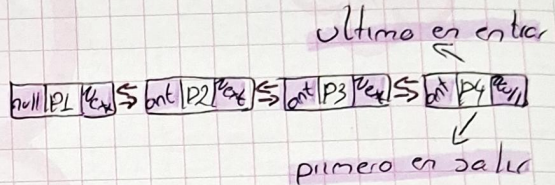 Ultimo en entrar
null P1 next ant P2 next ant P3 next ant P4 null
primero en salir